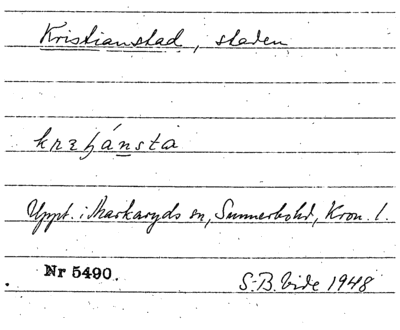 Kristianstad, staden
krɛʃánsta
Uppt. i Markaryds sn, Sunnerbohd, Kron. l.
Nr 5490.
S-B. Vide 1948